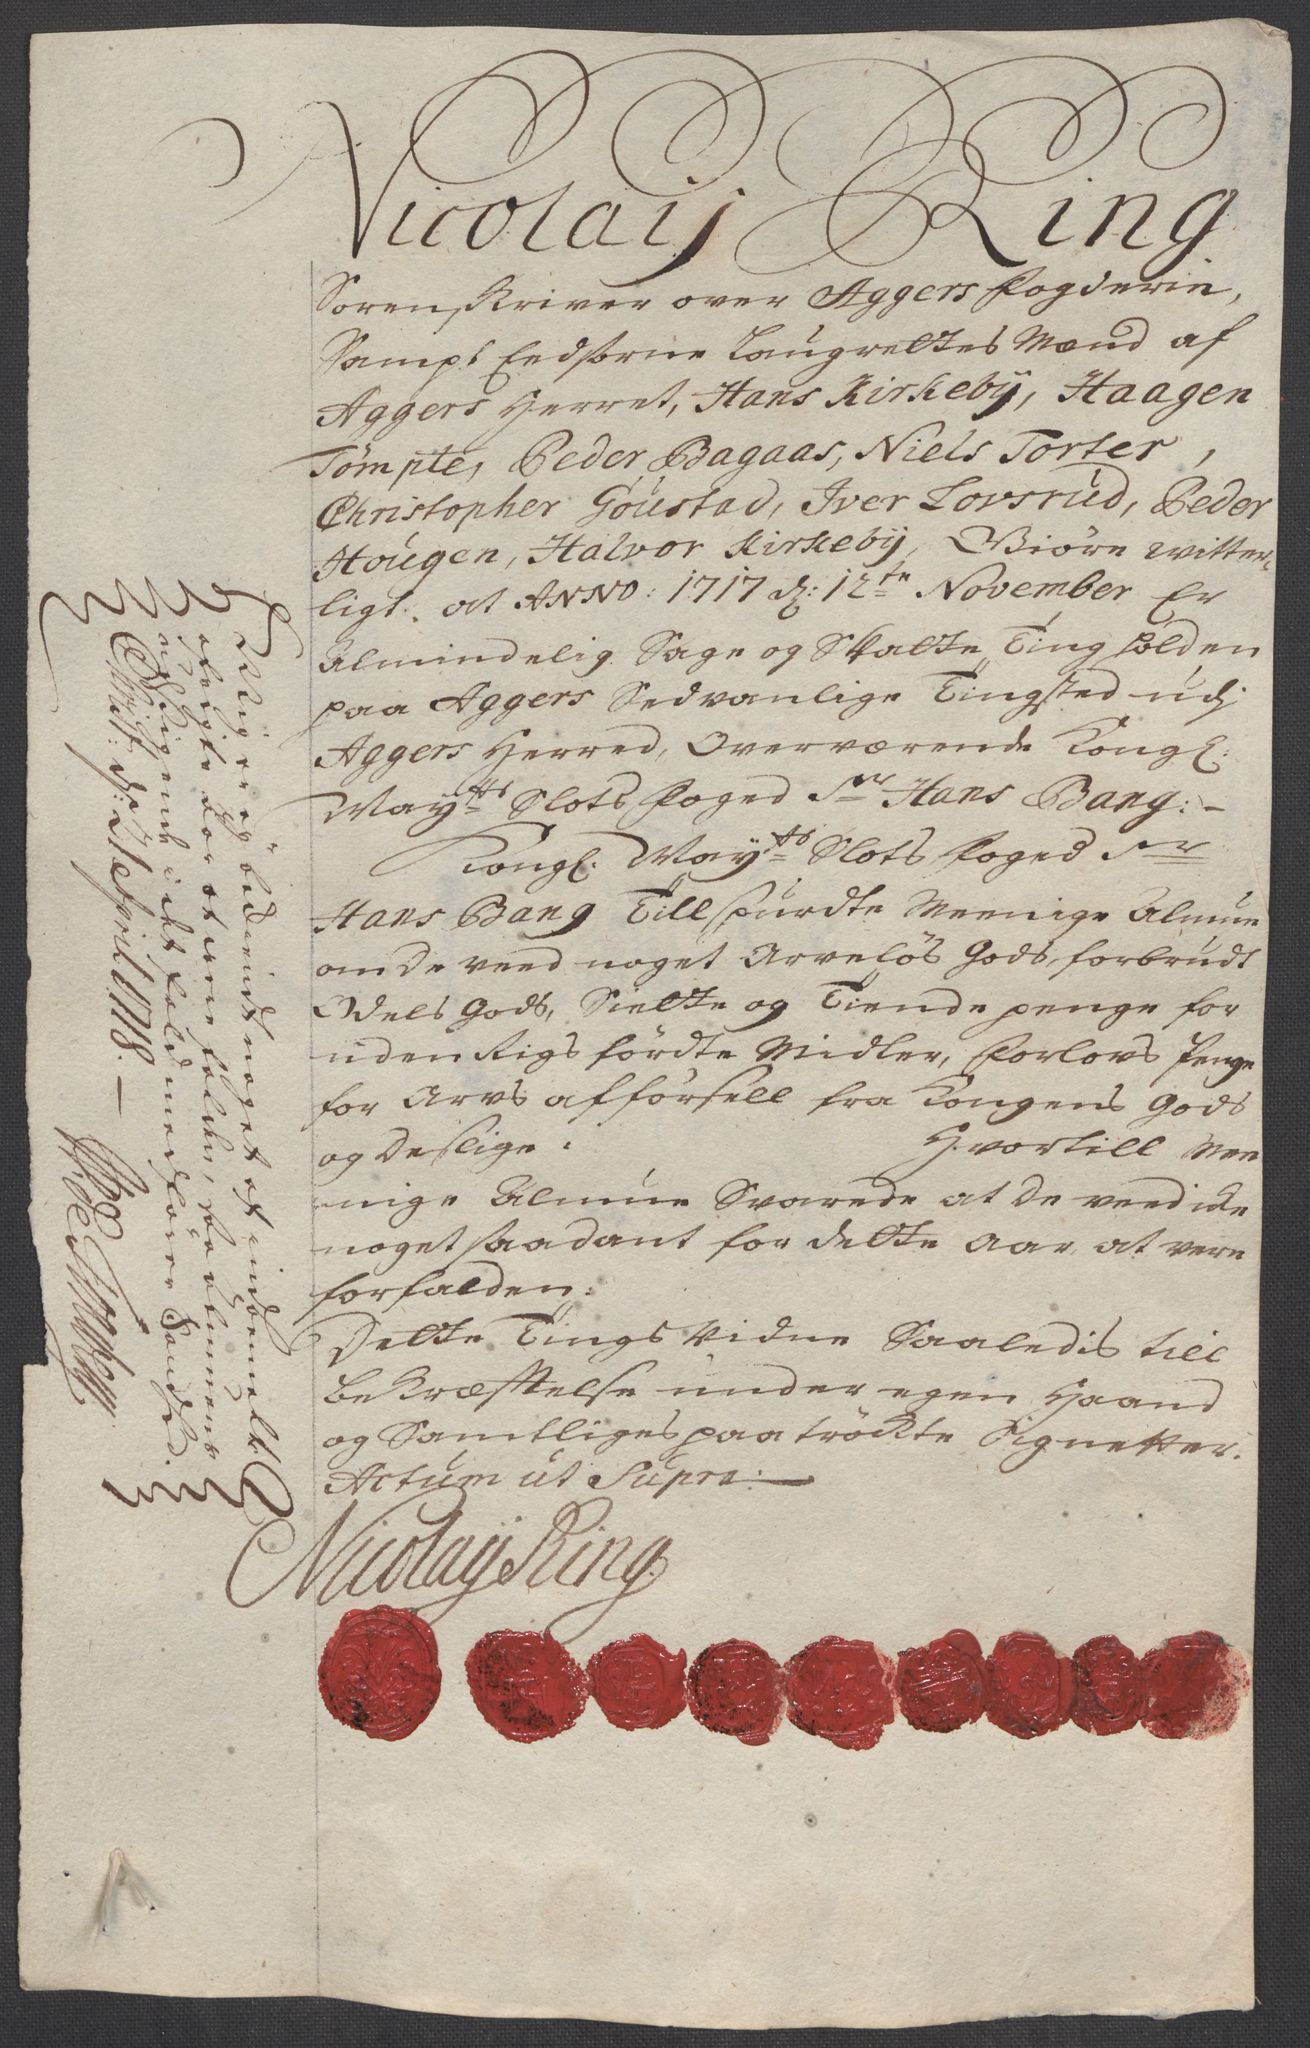 Nicolaÿ Ring
Sorenskriver over Aggers Fogderie,
Sampt Eedsorne Laugrettes Mænd af
Aggers Herret, Hans Kirkebÿ, Haagen
Tömpte, Peder Bagaas, Niels Torter,
Christopher Göustad, Iver Lovsrud, Peder
Hougen, Halvor Kirkebÿ, Giöre witter-
ligt at ANNO: 1717 d: 12te November Er
Almindelig Sage og Skatte Ting holden
paa Aggers Sedvanlige Tingsted udj
Aggers Herred, Overværende Kongl:
Mayts Slots Foged Sr Hans Bang:-
Kongl: Mayts Slots Foged Sr
Hans Bang Till spurdte Meenige Almue
om de veed noget Arvelös Gods, forbrudt
Odels Gods, Siette og Tiende penge for
uden Rigs fördte Midler, Forlovs Penge
for Arvs afförsell fra Kongens Gods
og deslige: Hvortill Mee
nige Almue Svarede at de veed icke
noget saadant for dette Aar at vere
forfalden:
Dette Tings Vidne Saaledis till
bekræfftelse under egen Haand
og Samtliges paatröckte Signetter.
Actum ut Supra:
Nicolaÿ Ring.
noget af indbemelte
1718.